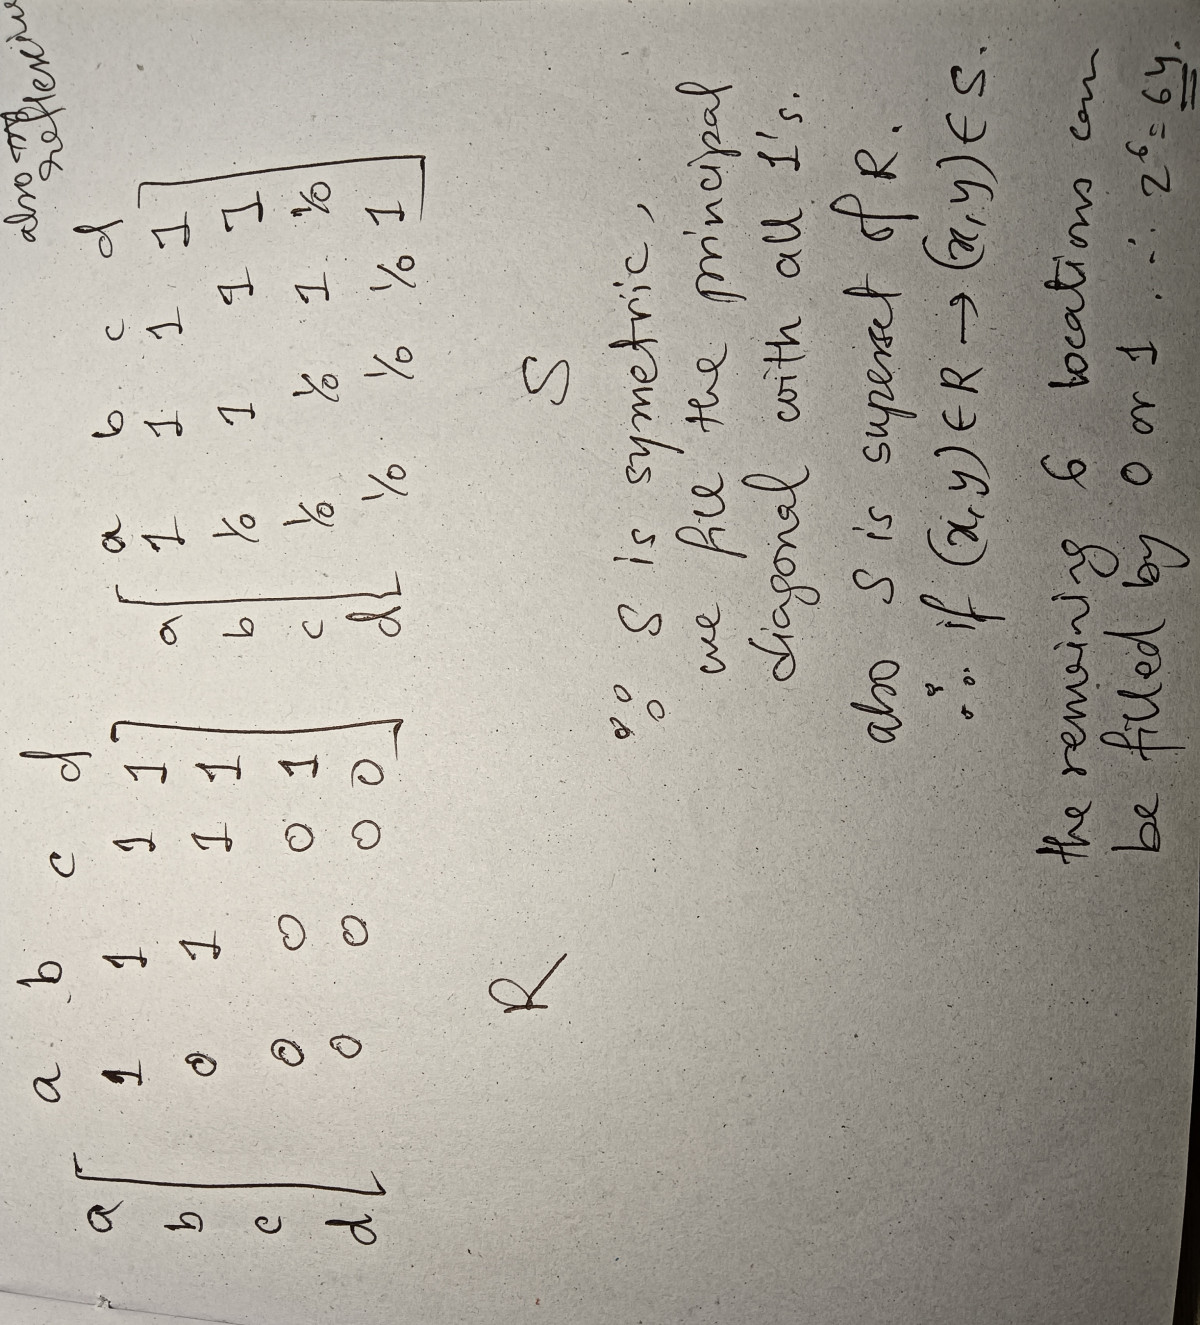 also
reflexive
a b c d
a 1 1 1 1
b 0 1 1 1
c 0 0 0 1
d 0 0 0 0
R
a b c d
a 1 1 1 1
b 1/0 1 1 1
c 1/0 1/0 1 1/0
d 1/0 1/0 1/0 1
S
∵ S is symetric,
we fill the principal
diagonal with all 1's.
also S is superset of R.
∴ if (x,y) ∈ R → (x,y) ∈ S.
the remaining 6 locations can
be filled by 0 or 1 ∴ 2⁶ = 64.